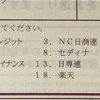 てください。
ジット　3．NC日商連
8．セディナ
イナンス　13．日専連
18．楽天